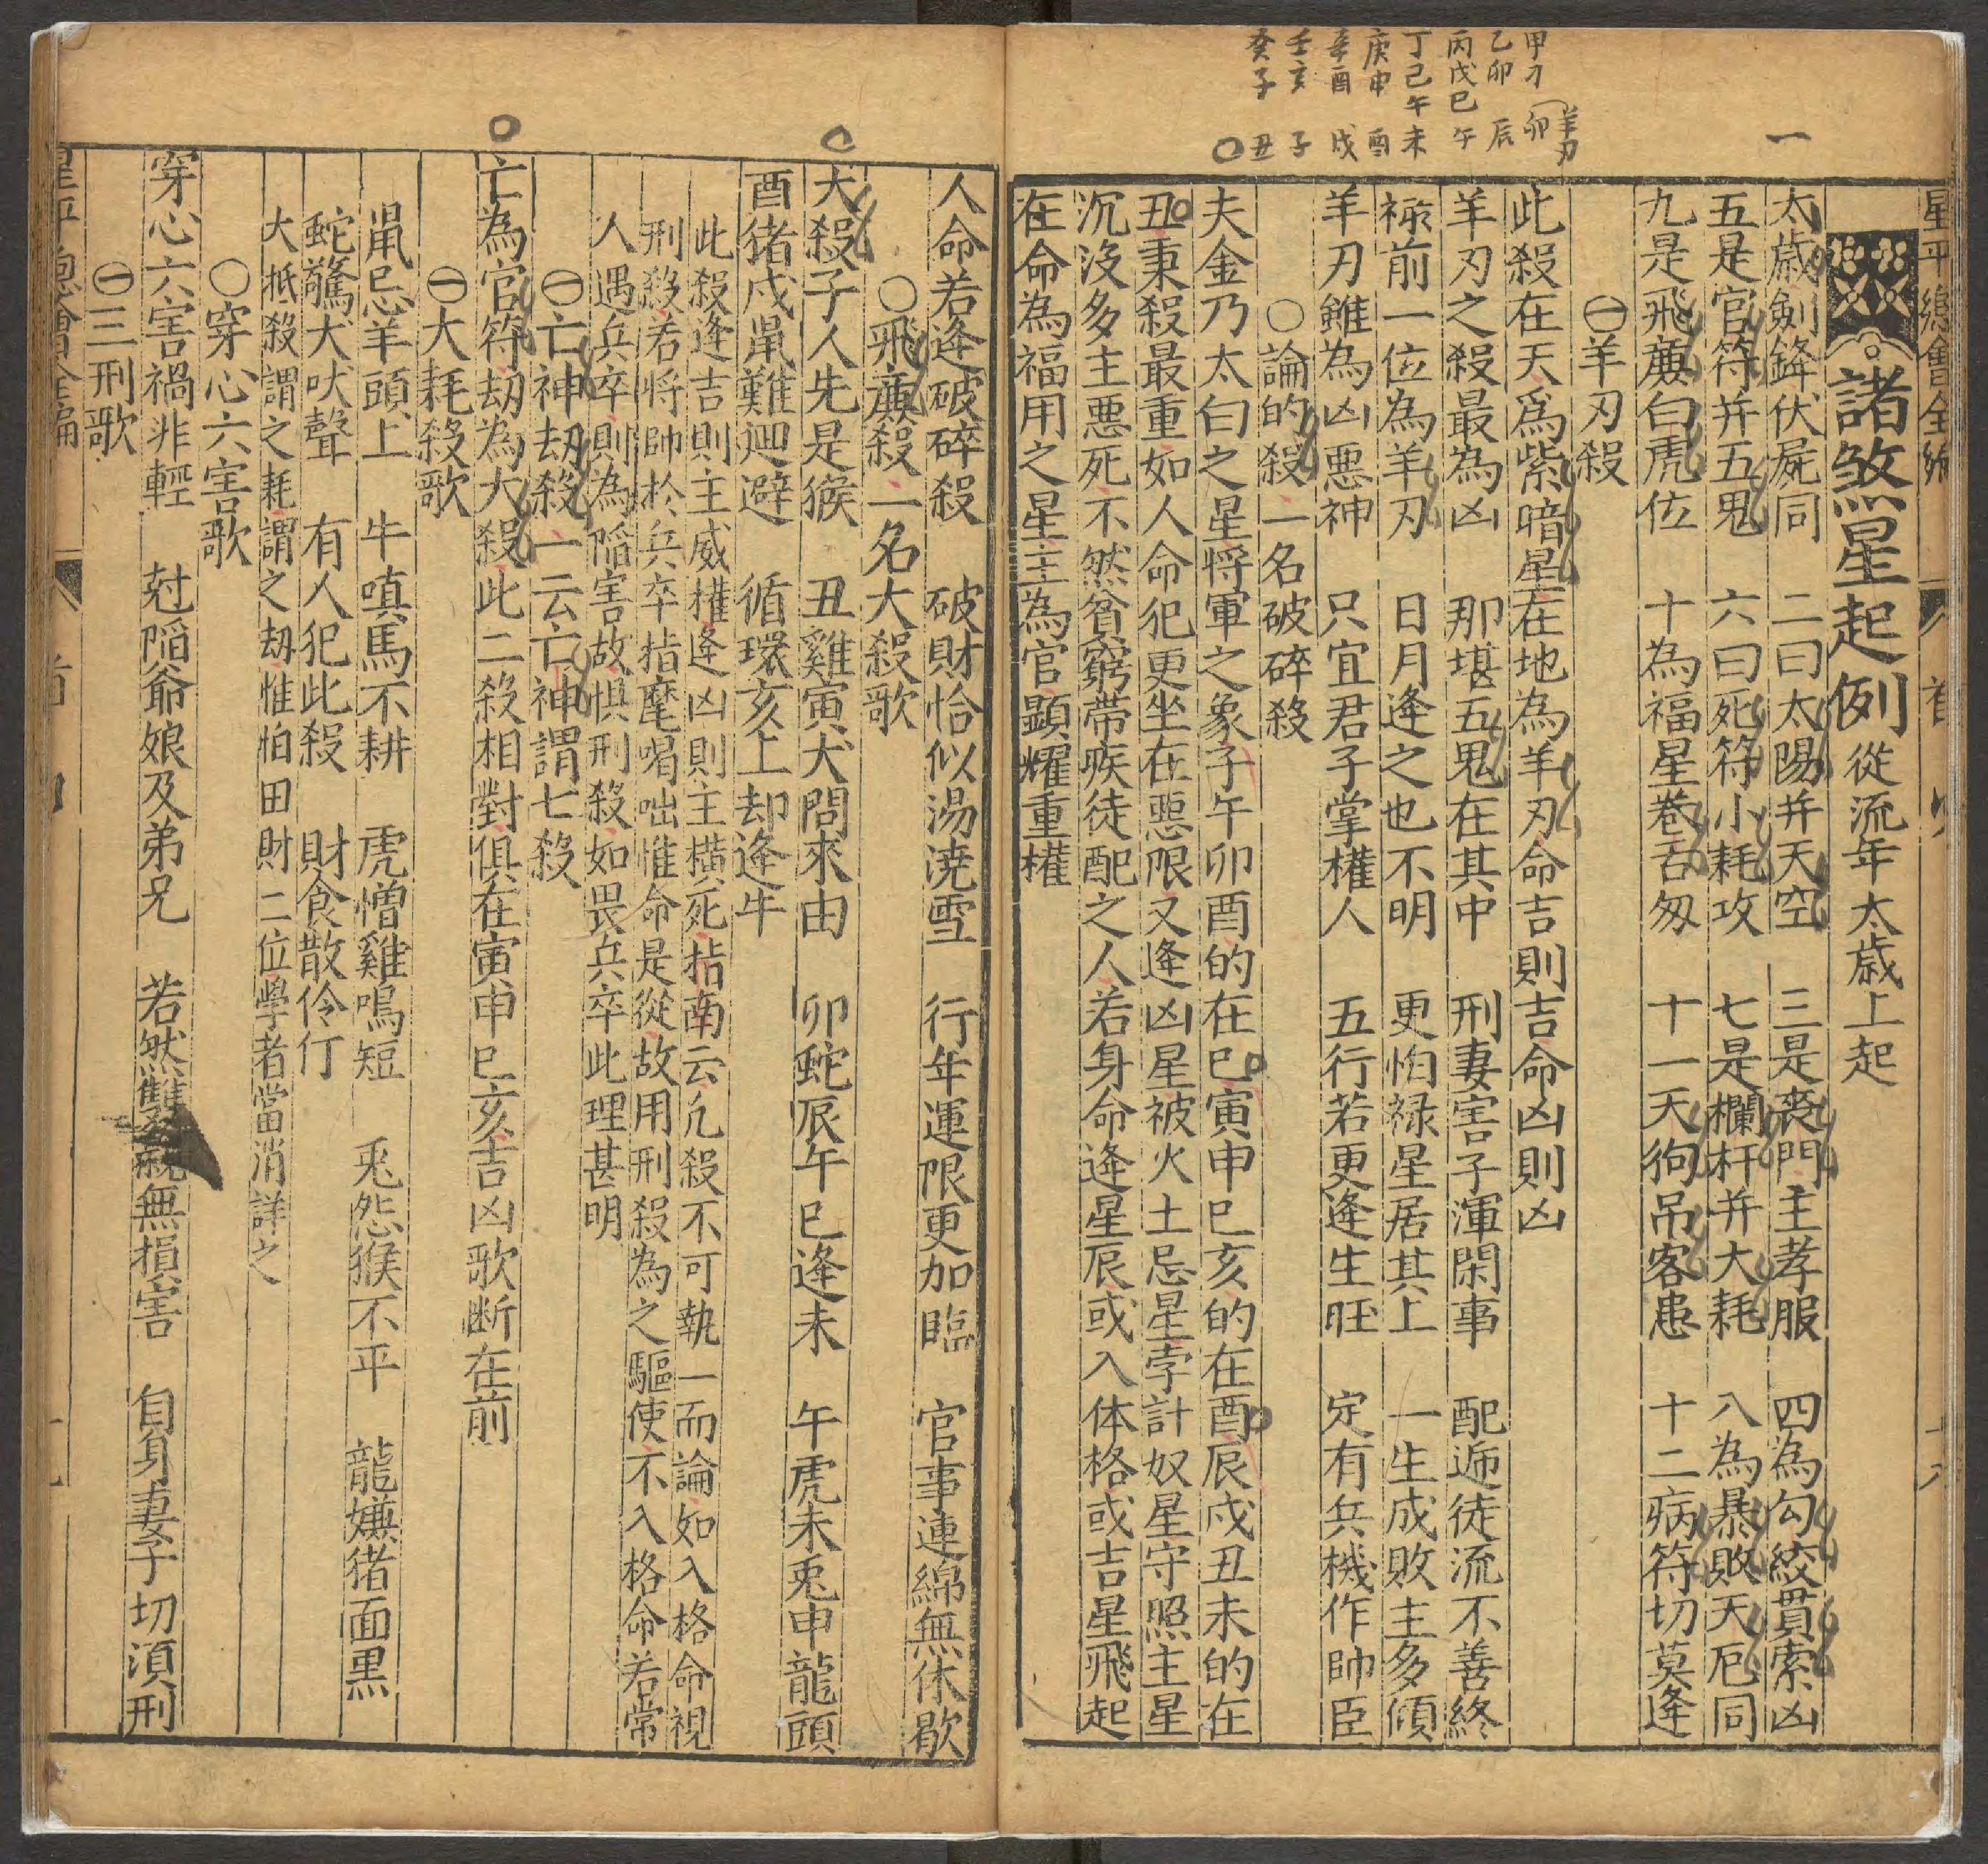 甲刀 卯
羊刃
乙卯 辰
丙戊巳 午
丁己午 未
庚申 酉
辛酉 戌
壬亥 子
癸子 丑
一
星平總會全編 首
諸煞星起例 從流年太歲上起
太歲劍鋒伏屍同 二曰太陽并天空 三是喪門主孝服 四為勾絞貫索凶
五是官符并五鬼 六曰死符小耗攻 七是欄杆并大耗 八為暴敗天厄同
九是飛廉白虎位 十為福星卷舌匆 十一天狗吊客患 十二病符切莫逢
㊀羊刃殺
此殺在天爲紫暗星在地為羊刃命吉則吉命凶則凶
羊刃之殺最為凶 那堪五鬼在其中 刑妻害子渾閑事 配遞徒流不善終
祿前一位為羊刃 日月逢之也不明 更怕祿星居其上 一生成敗主多傾
羊刃雖為凶惡神 只宜君子掌權人 五行若更逢生旺 定有兵機作帥臣
○論的殺一名破碎殺
夫金乃太白之星將軍之象子午卯酉的在巳寅申巳亥的在酉辰戌丑未的在
丑秉殺最重如人命犯更坐在惡限又逢凶星被火土忌星孛計奴星守照主星
沉沒多主惡死不然貧窮帶疾徒配之人若身命逢星辰或入体格或吉星飛起
在命為福用之星主為官顯耀重權
人命若逢破碎殺 破財恰似湯澆雪 行年運限更加臨 官事連綿無休歇
○飛廉殺一名大殺歌
大殺子人先是猴 丑雞寅犬問來由 卯蛇辰午巳逢未 午虎未兎申龍頭
酉猪戌鼠難迴避 循環亥上却逢牛
此殺逢吉則主威權逢凶則主橫死指南云凢殺不可執一而論如入格命視
刑殺若將帥於兵卒指麾喝咄惟命是從故用刑殺為之驅使不入格命若常
人遇兵卒則為陷害故惧刑殺如畏兵卒此理甚明
㊀亡神刼殺一云亡神謂七殺
亡為官符刼為大殺此二殺相對俱在寅申巳亥吉凶歌断在前
㊀大耗殺歌
鼠忌羊頭上 牛嗔馬不耕 虎憎雞鳴短 兎怨猴不平 龍嫌猪面黒
蛇驚犬吠聲 有人犯此殺 財食散伶仃
大抵殺謂之耗謂之刼惟怕田財二位學者當消詳之
○穿心六害歌
穿心六害禍非輕 尅陷爺娘及弟兄 若然雙親無損害 自身妻子切湏刑
㊀三刑歌